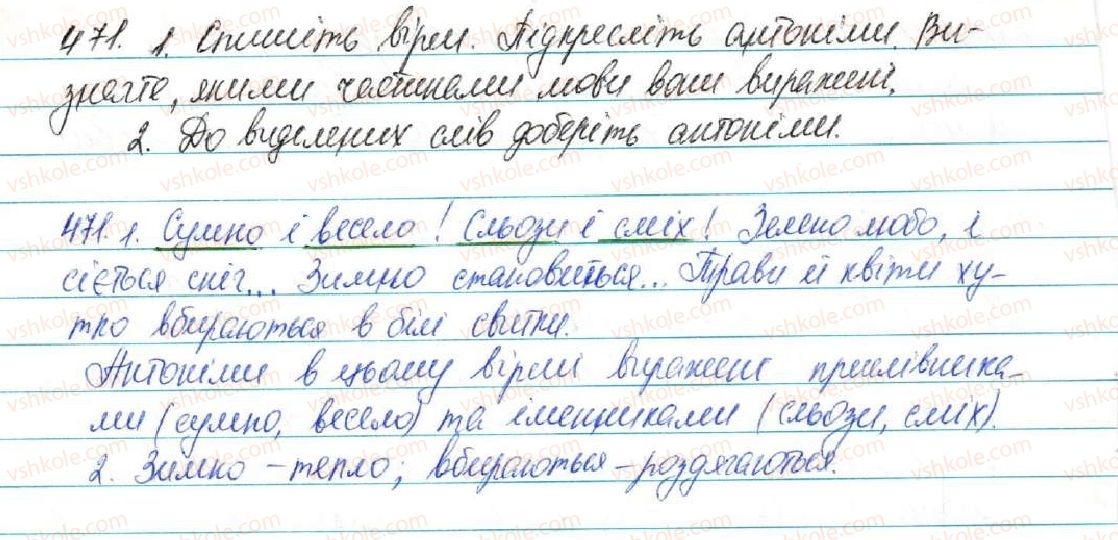 471. 1. Спишіть вірш. Підкресліть антоніми. Ви-
значте, якими частинами мови вони виражені.
2. До виділених слів доберіть антоніми.
471. 1. Сумно і весело! Сльози і сміх! Зелено, любо, і
сіється сніг... Зимно становиться... Трави й квіти ху-
тко вбираються в білі свитки.
Антоніми в цьому вірші виражені прислівника-
ми (сумно, весело) та іменниками (сльози, сміх).
2. Зимно - тепло; вбираються - роздягаються.